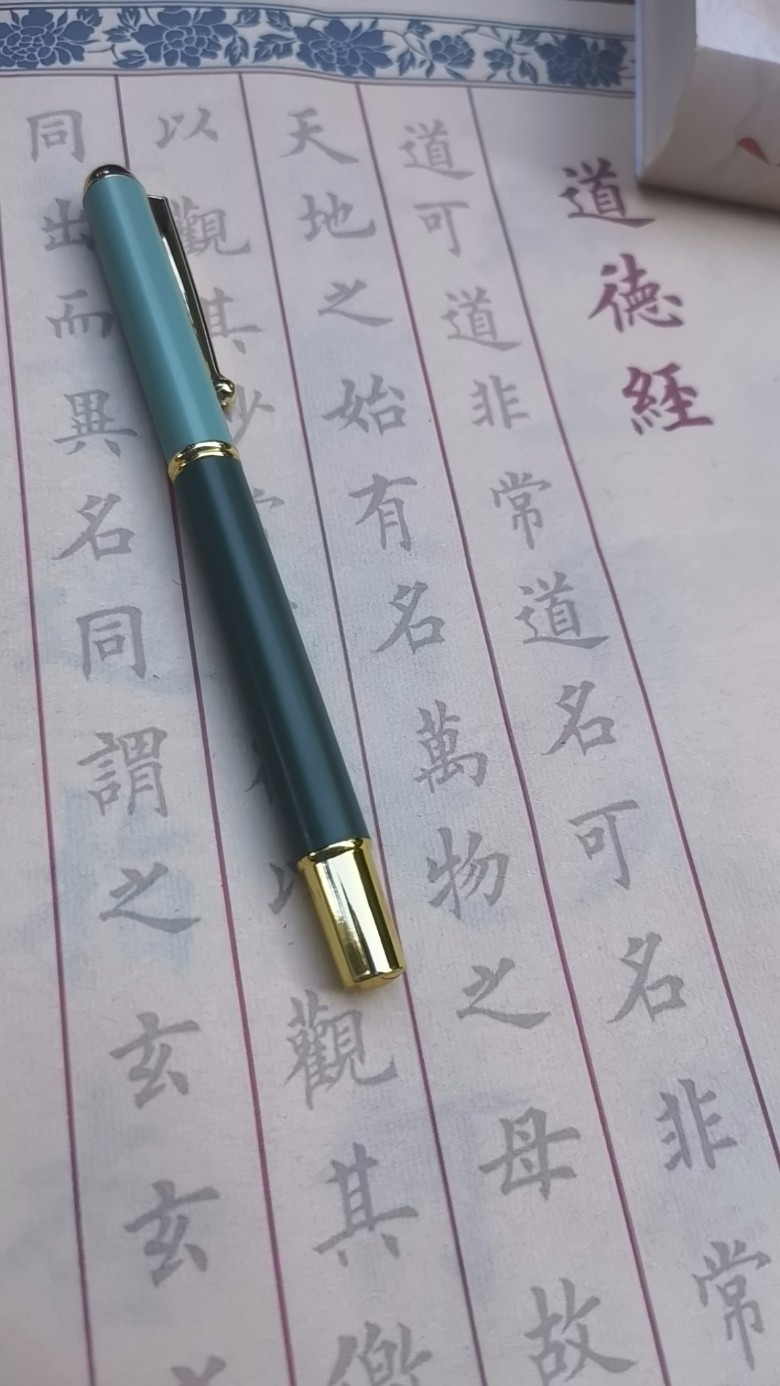 道德經
道可道非常道名可名非常
天地之始有名萬物之母故
以觀其妙觀其徼
同出而異名同謂之玄玄